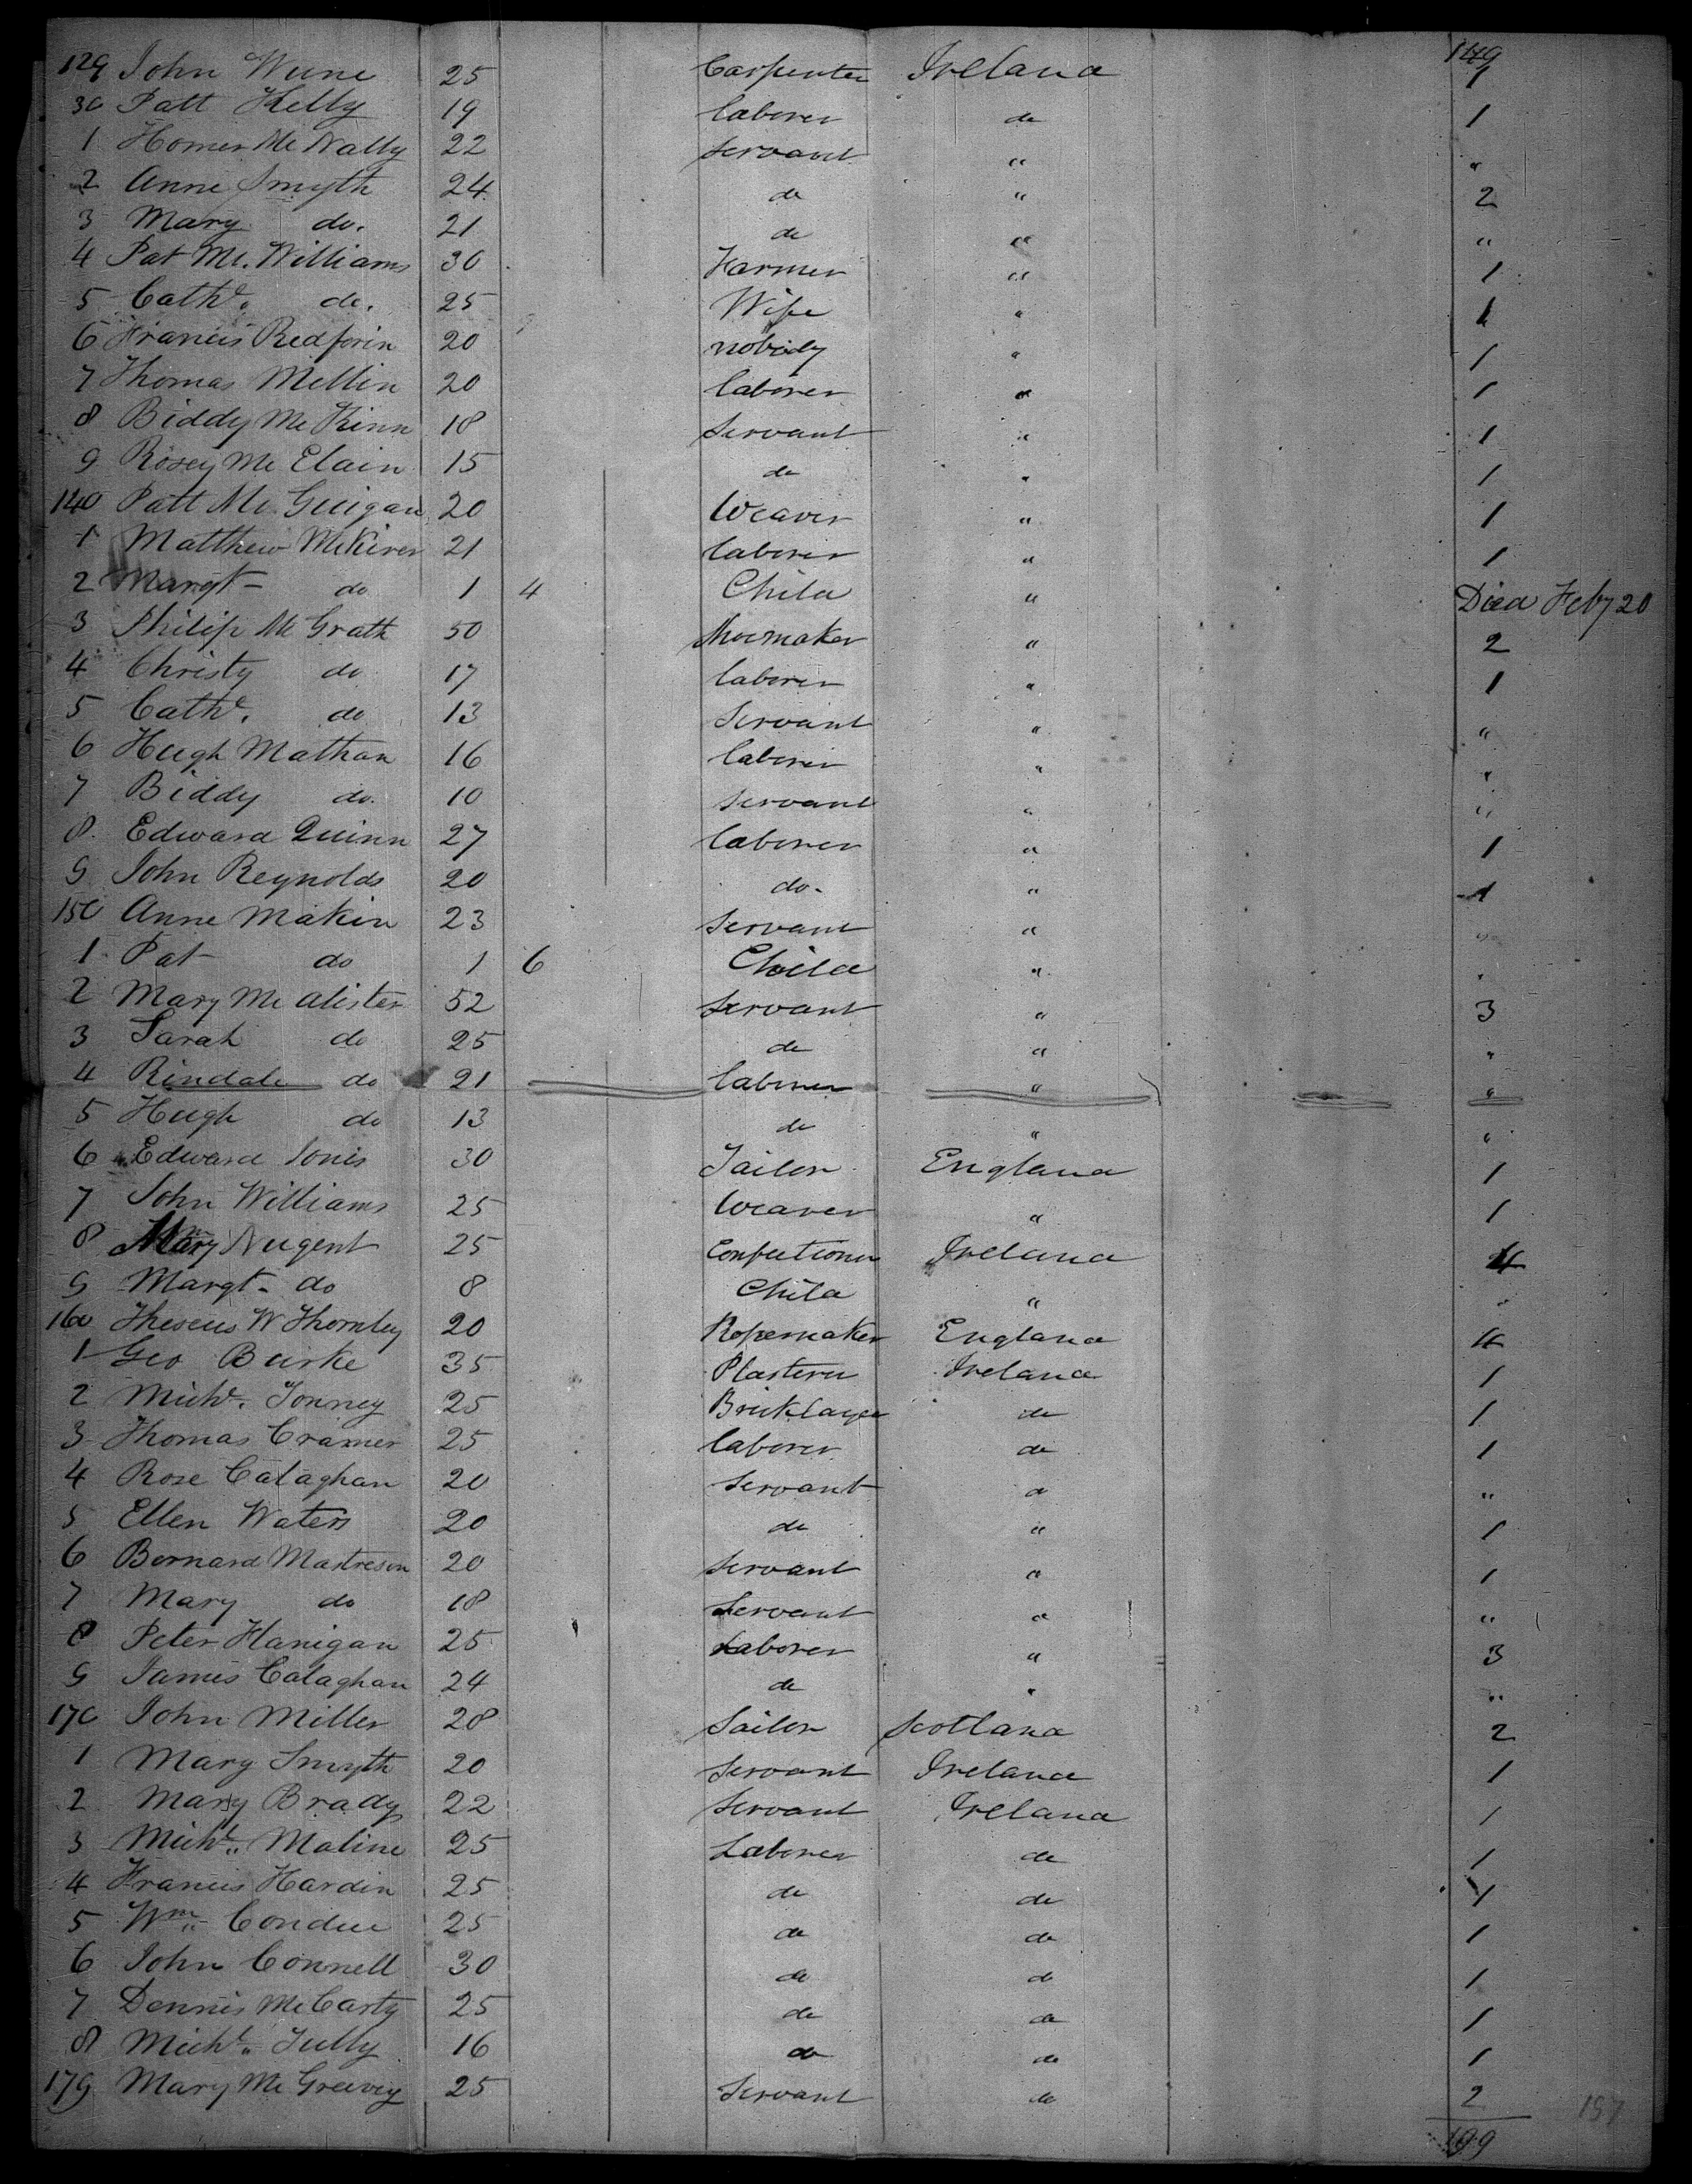 149
129 John Wune 25 Carpenter Ireland 1
30 Patt Kelly 19 laborer do 1
1 Homer Mc Nally 22 servant " "
2 Anne Smyth 24 do " 2
3 Mary do. 21 do " "
4 Pat Mc. Williams 30 Farmer " 1
5 Cathe. do. 25 Wife " 1
6 Francis Redforin 20 nobody " 1
7 Thomas Mellin 20 laborer " 1
8 Biddy Mc Kinn 18 Servant " 1
9 Rosey Mc Elain 15 do " 1
140 Patt Mc Guigan 20 Weaver " 1
1 Matthew McKiver 21 laborer " 1
2 Margt - do 1 4 Child " Died Feby 20
3 Philip Mc Grath 50 Shoemaker " 2
4 Christy do 17 laborer " 1
5 Cathe. do 13 Servant " "
6 Hugh Mathan 16 laborer " "
7 Biddy do. 10 servant " "
8. Edward Quinn 27 laborer " 1
9 John Reynolds 20 do. " 1
150 Anne Makin 23 servant " "
1 Pat do 1 6 Child " "
2 Mary Mc alister 52 servant " 3
3 Sarah do 25 do " "
4 Rindale do 21 laborer " "
5 Hugh do 13 do " "
6 Edward Jones 30 Tailor England 1
7 John Williams 25 Weaver " 1
8 Nugent 25 Confectioner Ireland 4
9 Margt - do 8 Child " "
160 Theseus W Thornley 20 Ropemaker England 4
1 Geo Burke 35 Plasterer Ireland 1
2 Michl. Tonney 25 Bricklayer do 1
3 Thomas Cramer 25 laborer do 1
4 Rose Calaghan 20 Servant " "
5 Ellen Waters 20 do " 1
6 Bernard Mastreson 20 servant " 1
7 Mary do 18 Servant " "
8 Peter Hanigan 25 Laborer " 3
9 James Calaghan 24 do " "
170 John Miller 28 Sailor Scotland 2
1 Mary Smyth 20 Servant Ireland 1
2 Mary Brady 22 Servant Ireland 1
3 Michl. Maline 25 Laborer do 1
4 Francis Hardin 25 do do 1
5 Wm. Condue 25 do do 1
6 John Connell 30 do do 1
7 Dennis McCarty 25 do do 1
8 Michl. Tully 16 do do 1
179 Mary Mc Greevey 25 Servant do 2
199
157